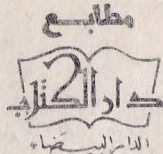 مطابع
دار الكتاب
2
الدار البيضاء